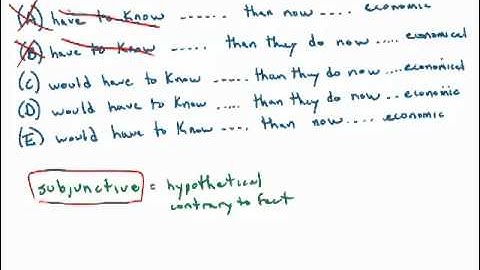 (A) have to know ...... than now .... economic
(B) have to know ..... than they do now .... economical
(C) would have to know ..... than they do now .... economical
(D) would have to know ..... than they do now .. economic
(E) would have to know .... than now .... economic
subjunctive = hypothetical
contrary to fact